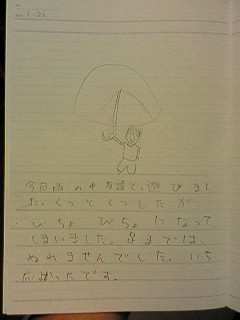 今日雨の中を走って、遊びまし
た。くつとくつしたが
びちょびちょになって
しまいました。足までは、
ぬれませんでした。いち
だったです。